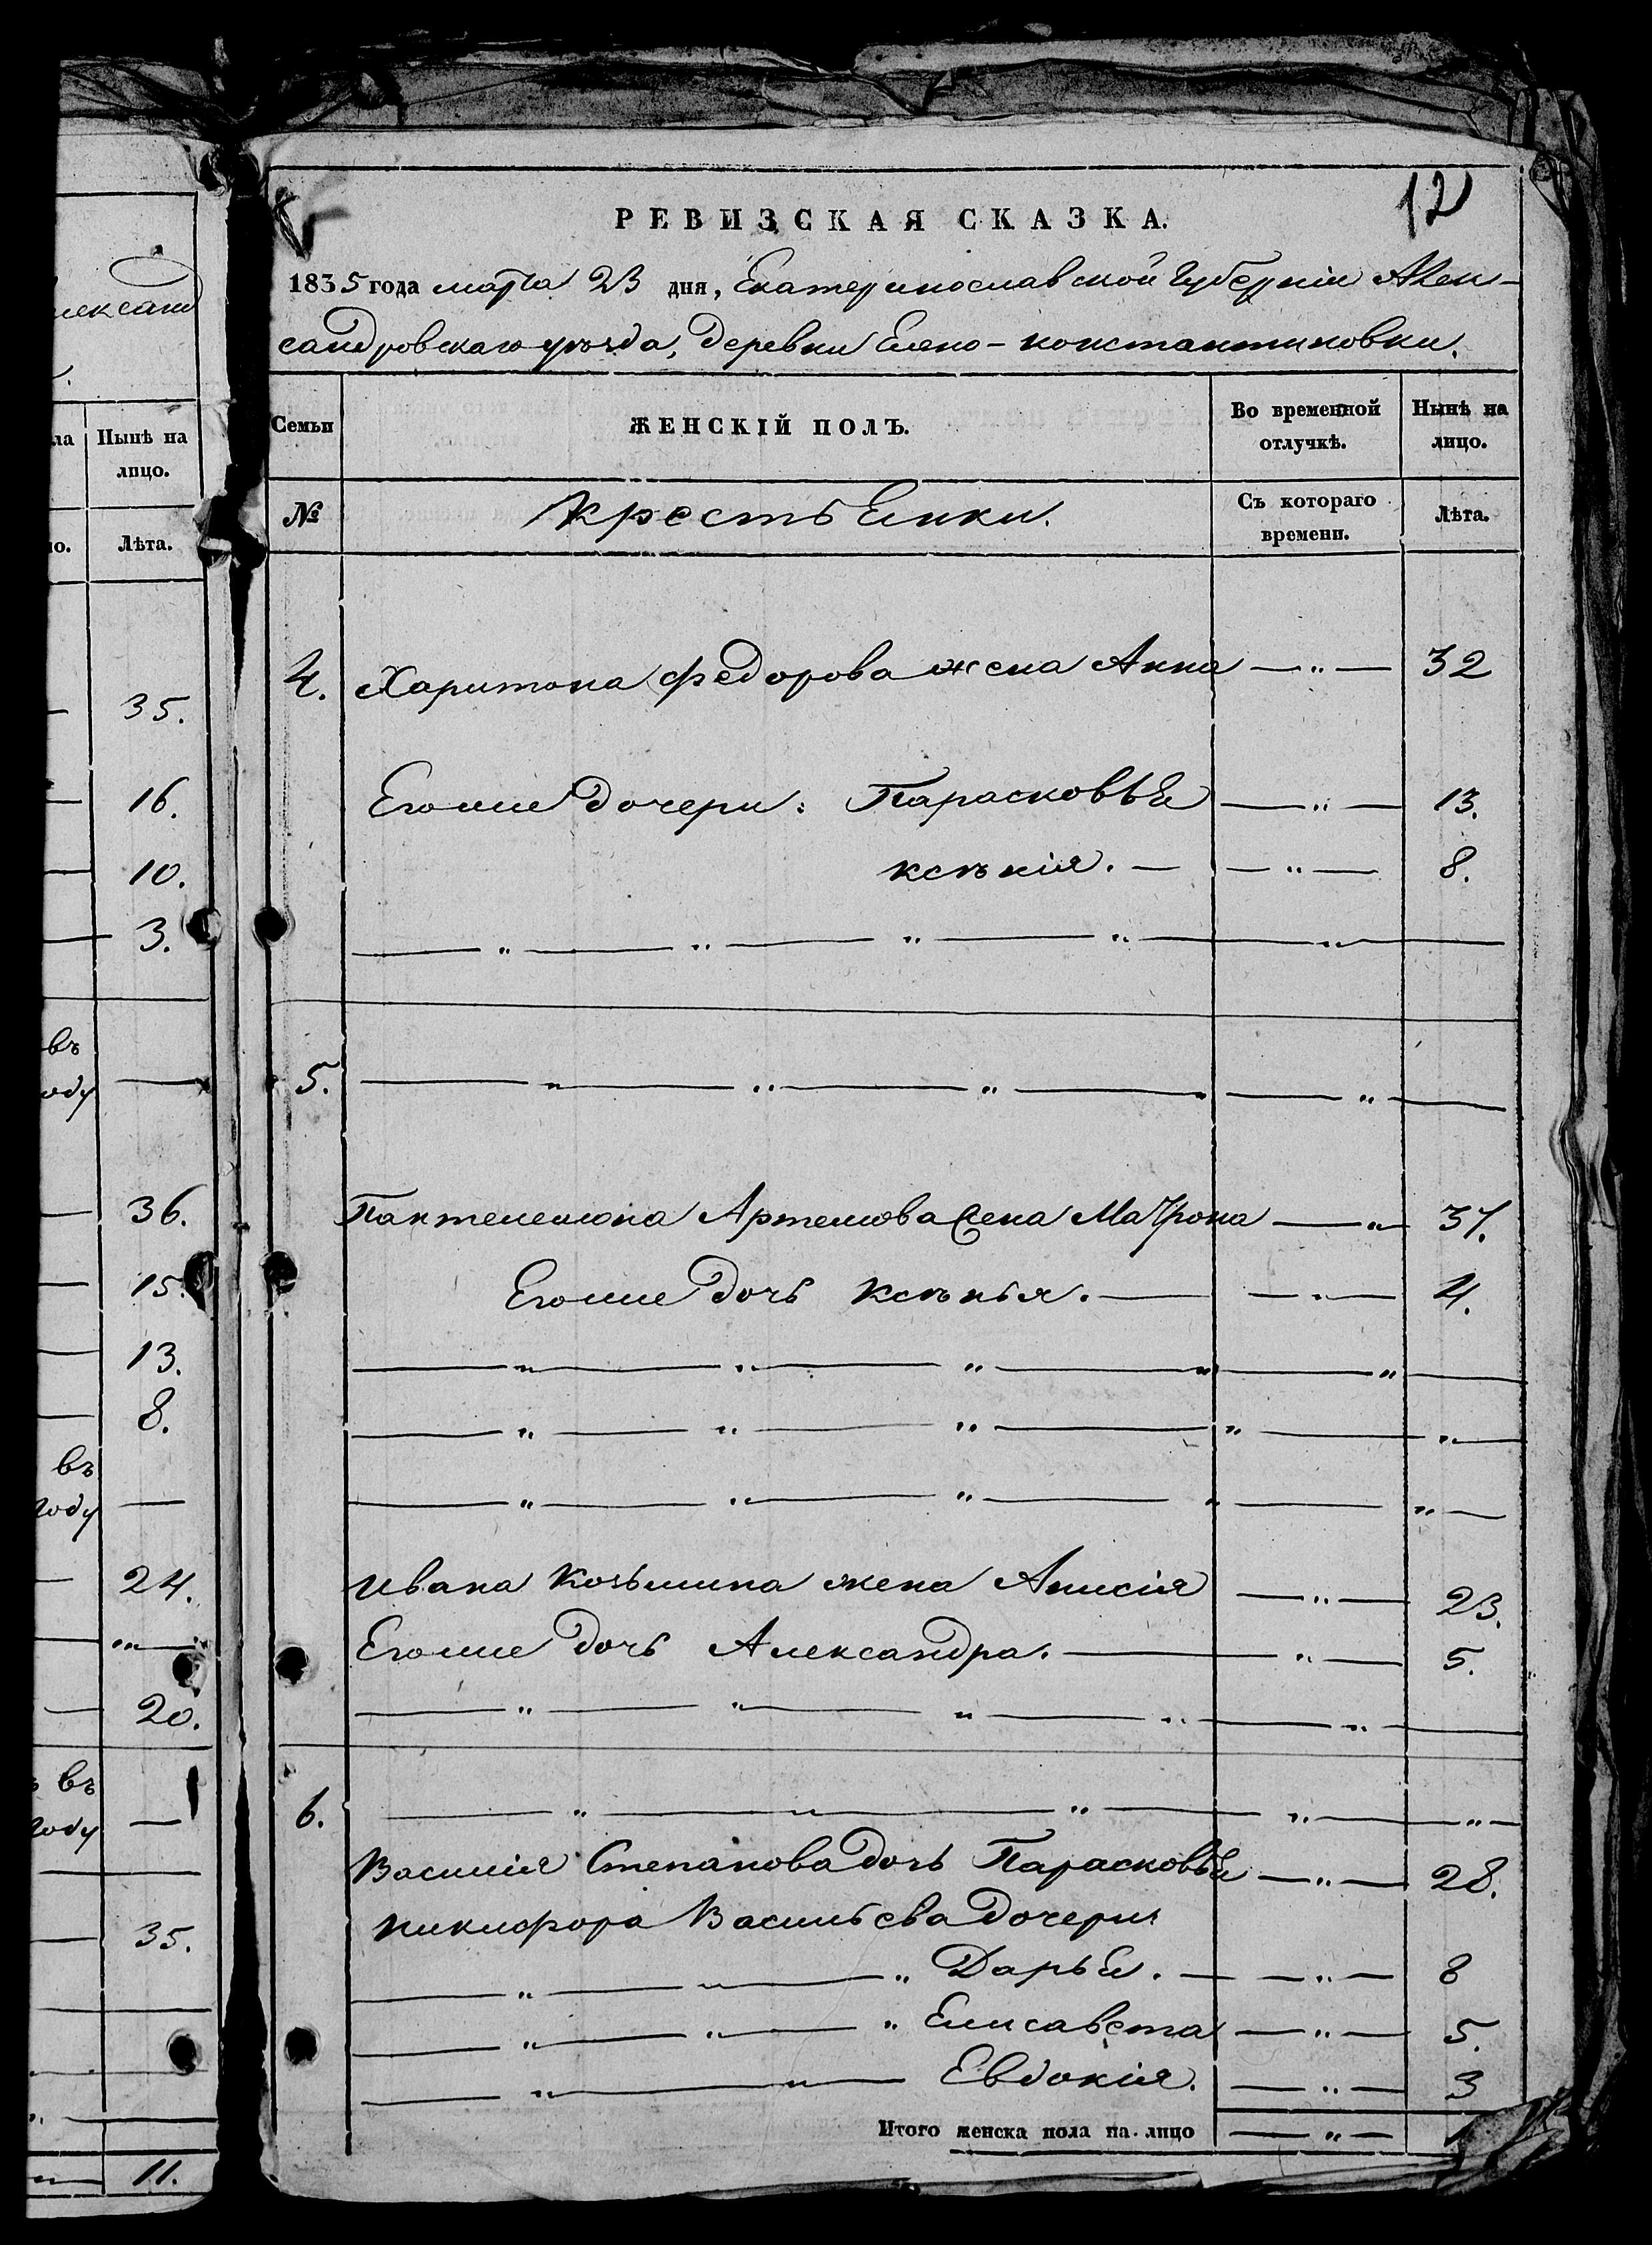 лександ
ла Нынѣ на
лицо.
но. Лѣта.
35.
16.
10.
3.
въ
оду
36.
15.
13.
8.
въ
году
24.
20.
въ
году
35.
11.
12
РЕВИЗСКАЯ СКАЗКА.
1835 года марта 23 дня, Екатеринославской Губерніи Алек-
сандровскаго уѣзда, деревни Елено-константиновки.
Семьи ЖЕНСКІЙ ПОЛЪ. Во временной отлучкѣ. Нынѣ на лицо.
№ крестьянки. Съ котораго времени. Лѣта.
4. Харитона Федорова жена Анна — " — 32
Егоже дочери: Парасковья — " — 13.
ксѣнія. — — " — 8.
— " — " — " — " — " —
5. — " — " — " — " — " —
Пантелемона Артемова жена Матрона — " — 37.
Егоже дочь ксѣнья. — — " — 4.
— " — " — " — " — " —
— " — " — " — " — "
— " — " — " — " — " —
Ивана Козьмина жена Анисія — " — 23.
Егоже дочь Александра. — " — 5.
— " — " — " — " — " —
6. — " — " — " — " — " —
Василія Степанова дочь Парасковья — " — 28.
никифора Васильева дочери
— " — " — " Дарья. — — " — 8
— " — " — " Елисавета — " — 5.
— " — " — Евдокія. — " — 3
Итого женска пола на-лицо — " —